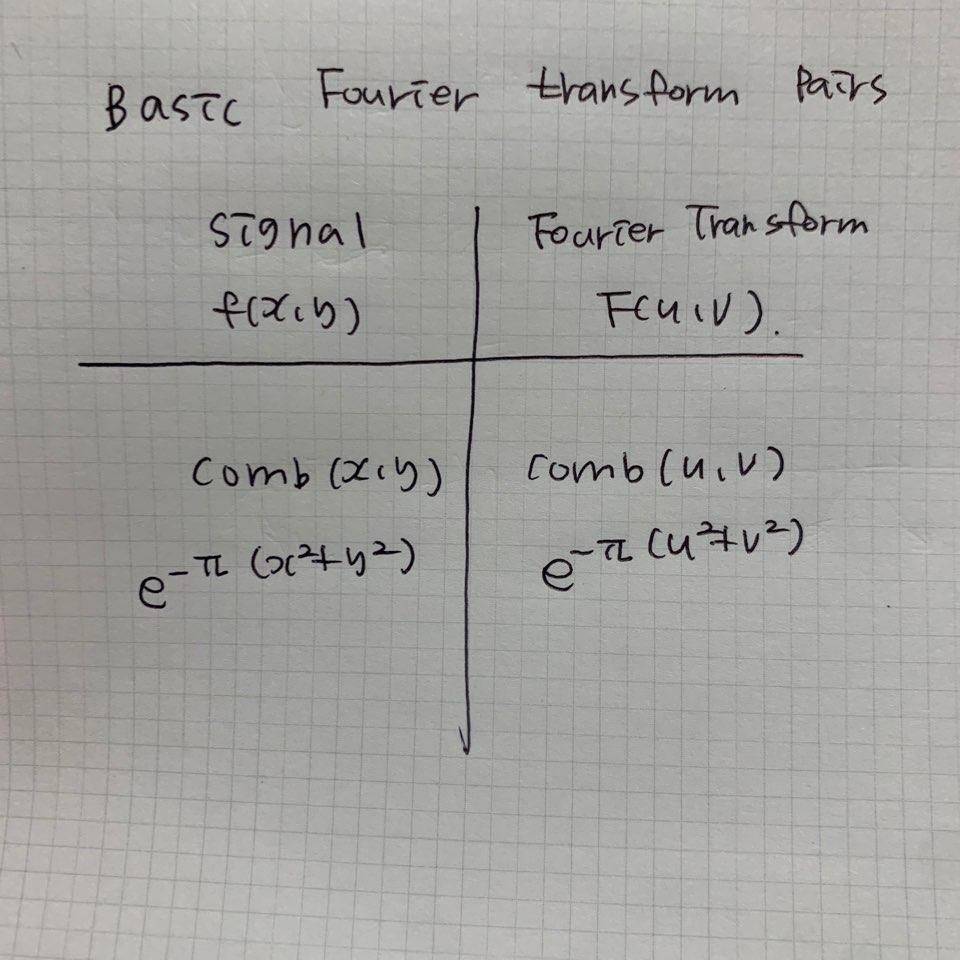 Basic Fourier transform Pairs
Signal Fourier Transform
f(x,y) F(u,v).
Comb (x,y) comb (u,v)
e^{-π (x²+y²)} e^{-π (u²+v²)}